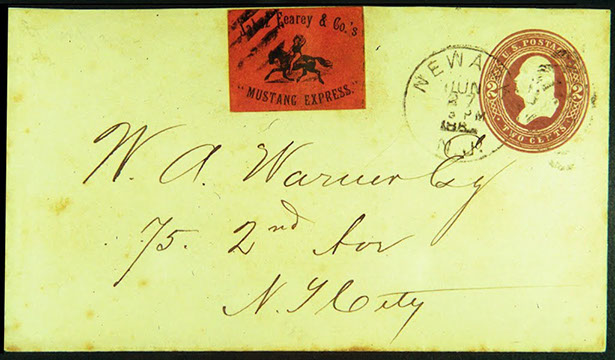 Fearey & Co.'s
"MUSTANG EXPRESS."
U.S. POSTAGE
TWO CENTS
2 2
NEWA
JUN
27
3 PM
N.J.
W. A. Warner Esq
75. 2nd Av
N. Y City